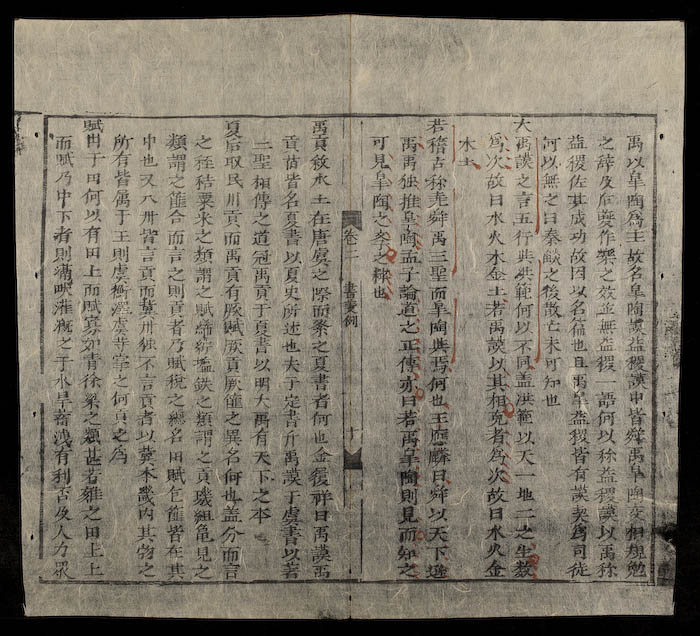 禹以皐陶爲主故名皐陶謨益稷謨中皆舜禹皐陶交相規勉
之辭及后夔作樂之效並無益稷一語何以稱益稷謨以禹稱
益稷佐其成功故因以名篇也且禹皐益稷皆有謨契爲司徒
何以無之曰秦燄之後散亡未可知也
大禹謨之言五行與洪範何以不同盖洪範以天一地二之生数
爲次故曰水火木金土若禹謨以其相克者爲次故曰水火金
木土
若稽古称尭舜禹三聖而皐陶與焉何也王應麟曰舜以天下遜
禹禹独推皐陶孟子論道之正傳亦曰若禹皐陶則見而知之
可見皐陶之矣之辭也
卷二 書叓例
十
禹貢敘水土在唐虞之際而系之夏書者何也金履祥曰禹謨禹
貢昔皆名夏書以夏史所述也夫子定書升禹謨于虞書以著
二聖相傳之道冠禹貢于夏書以明大禹有天下之本
夏后取民曰貢而禹貢有厥賦厥貢厥篚之異名何也盖分而言
之秷秸粟米之類謂之賦絺紵塩鉄之類謂之貢璣組亀貝之
類謂之篚合而言之則貢者乃賦稅之總名田賦包篚皆在其
中也又八州皆言貢而冀州独不言貢者以冀本畿内其物之
所有皆属于王則虞衡澤虞等掌之何貢之爲
賦出于田何以有田上而賦寡如青徐梁之類甚者雍之田上上
而賦乃中下者則溝畎灌漑之于水旱蓄洩有利否及人力衆